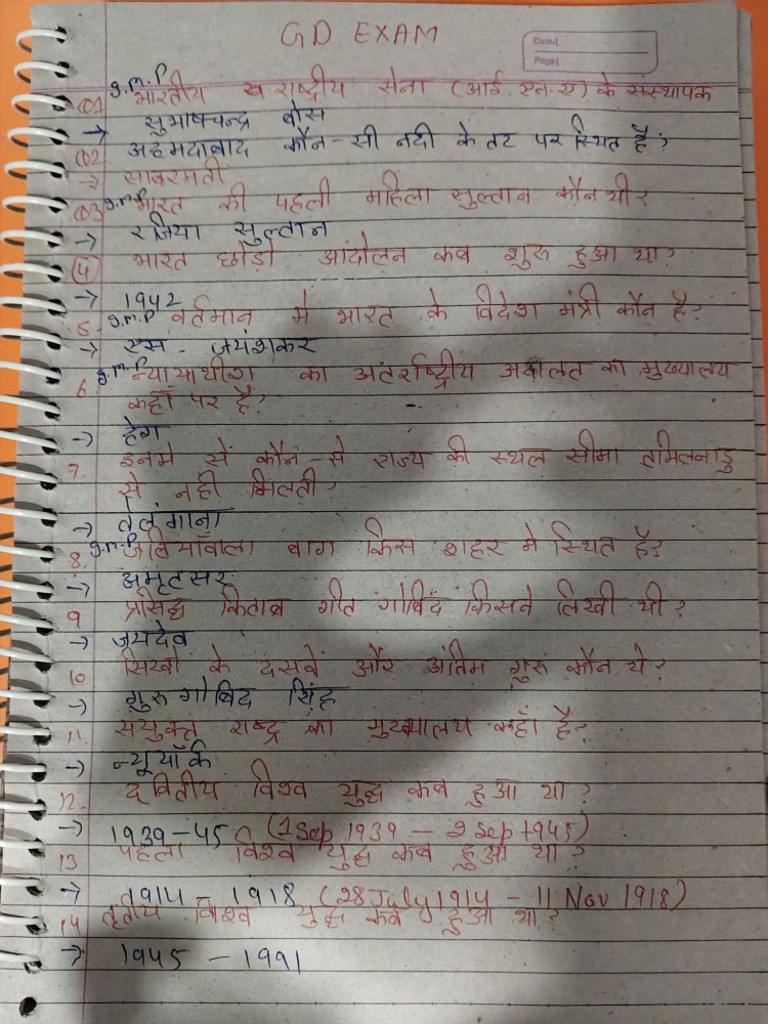 GD EXAM
Date:|
Page|
g.m.p
Q1 भारतीय राष्ट्रीय सेना (आई.एन.ए). के संस्थापक
→ सुभाषचन्द्र बोस
Q2 अहमदाबाद कौन-सी नदी के तट पर स्थित है?
→ साबरमती
Q3 g.m.p भारत की पहली महिला सुल्तान कौन थी?
→ रजिया सुल्तान
(4) भारत छोड़ो आंदोलन कब शुरू हुआ था?
→ 1942
5. g.m.p वर्तमान मे भारत के विदेश मंत्री कौन है?
→ एस. जयंशकर
6. g.m.p न्यायाधीश का अंतर्राष्ट्रीय अदालत का मुख्यालय
कहाँ पर है?
→ हेग
7. इनमे से कौन-से राज्य की स्थल सीमा तमिलनाडु
से नही मिलती?
→ तेलंगाना
8. g.m.p जलियाँवाला बाग किस शहर मे स्थित है?
→ अमृतसर
9 प्रसिद्ध किताब गीत गोविंद किसने लिखी थी?
→ जयदेव
10 सिखो के दसवें और अंतिम गुरू कौन थे?
→ गुरू गोबिद सिंह
11 संयुक्त राष्ट्र का मुख्यालय कहाँ है?
→ न्यूयॉर्क
12. दवितीय विश्व युद्ध कब हुआ था?
→ 1939-45 (1 Sep 1939 - 2 Sep 1945)
13 पहला विश्व युद्ध कब हुआ था?
→ 1914 - 1918 (28 July 1914 - 11 Nov 1918)
14 तृतीय विश्व युद्ध कब हुआ था?
→ 1945 - 1991